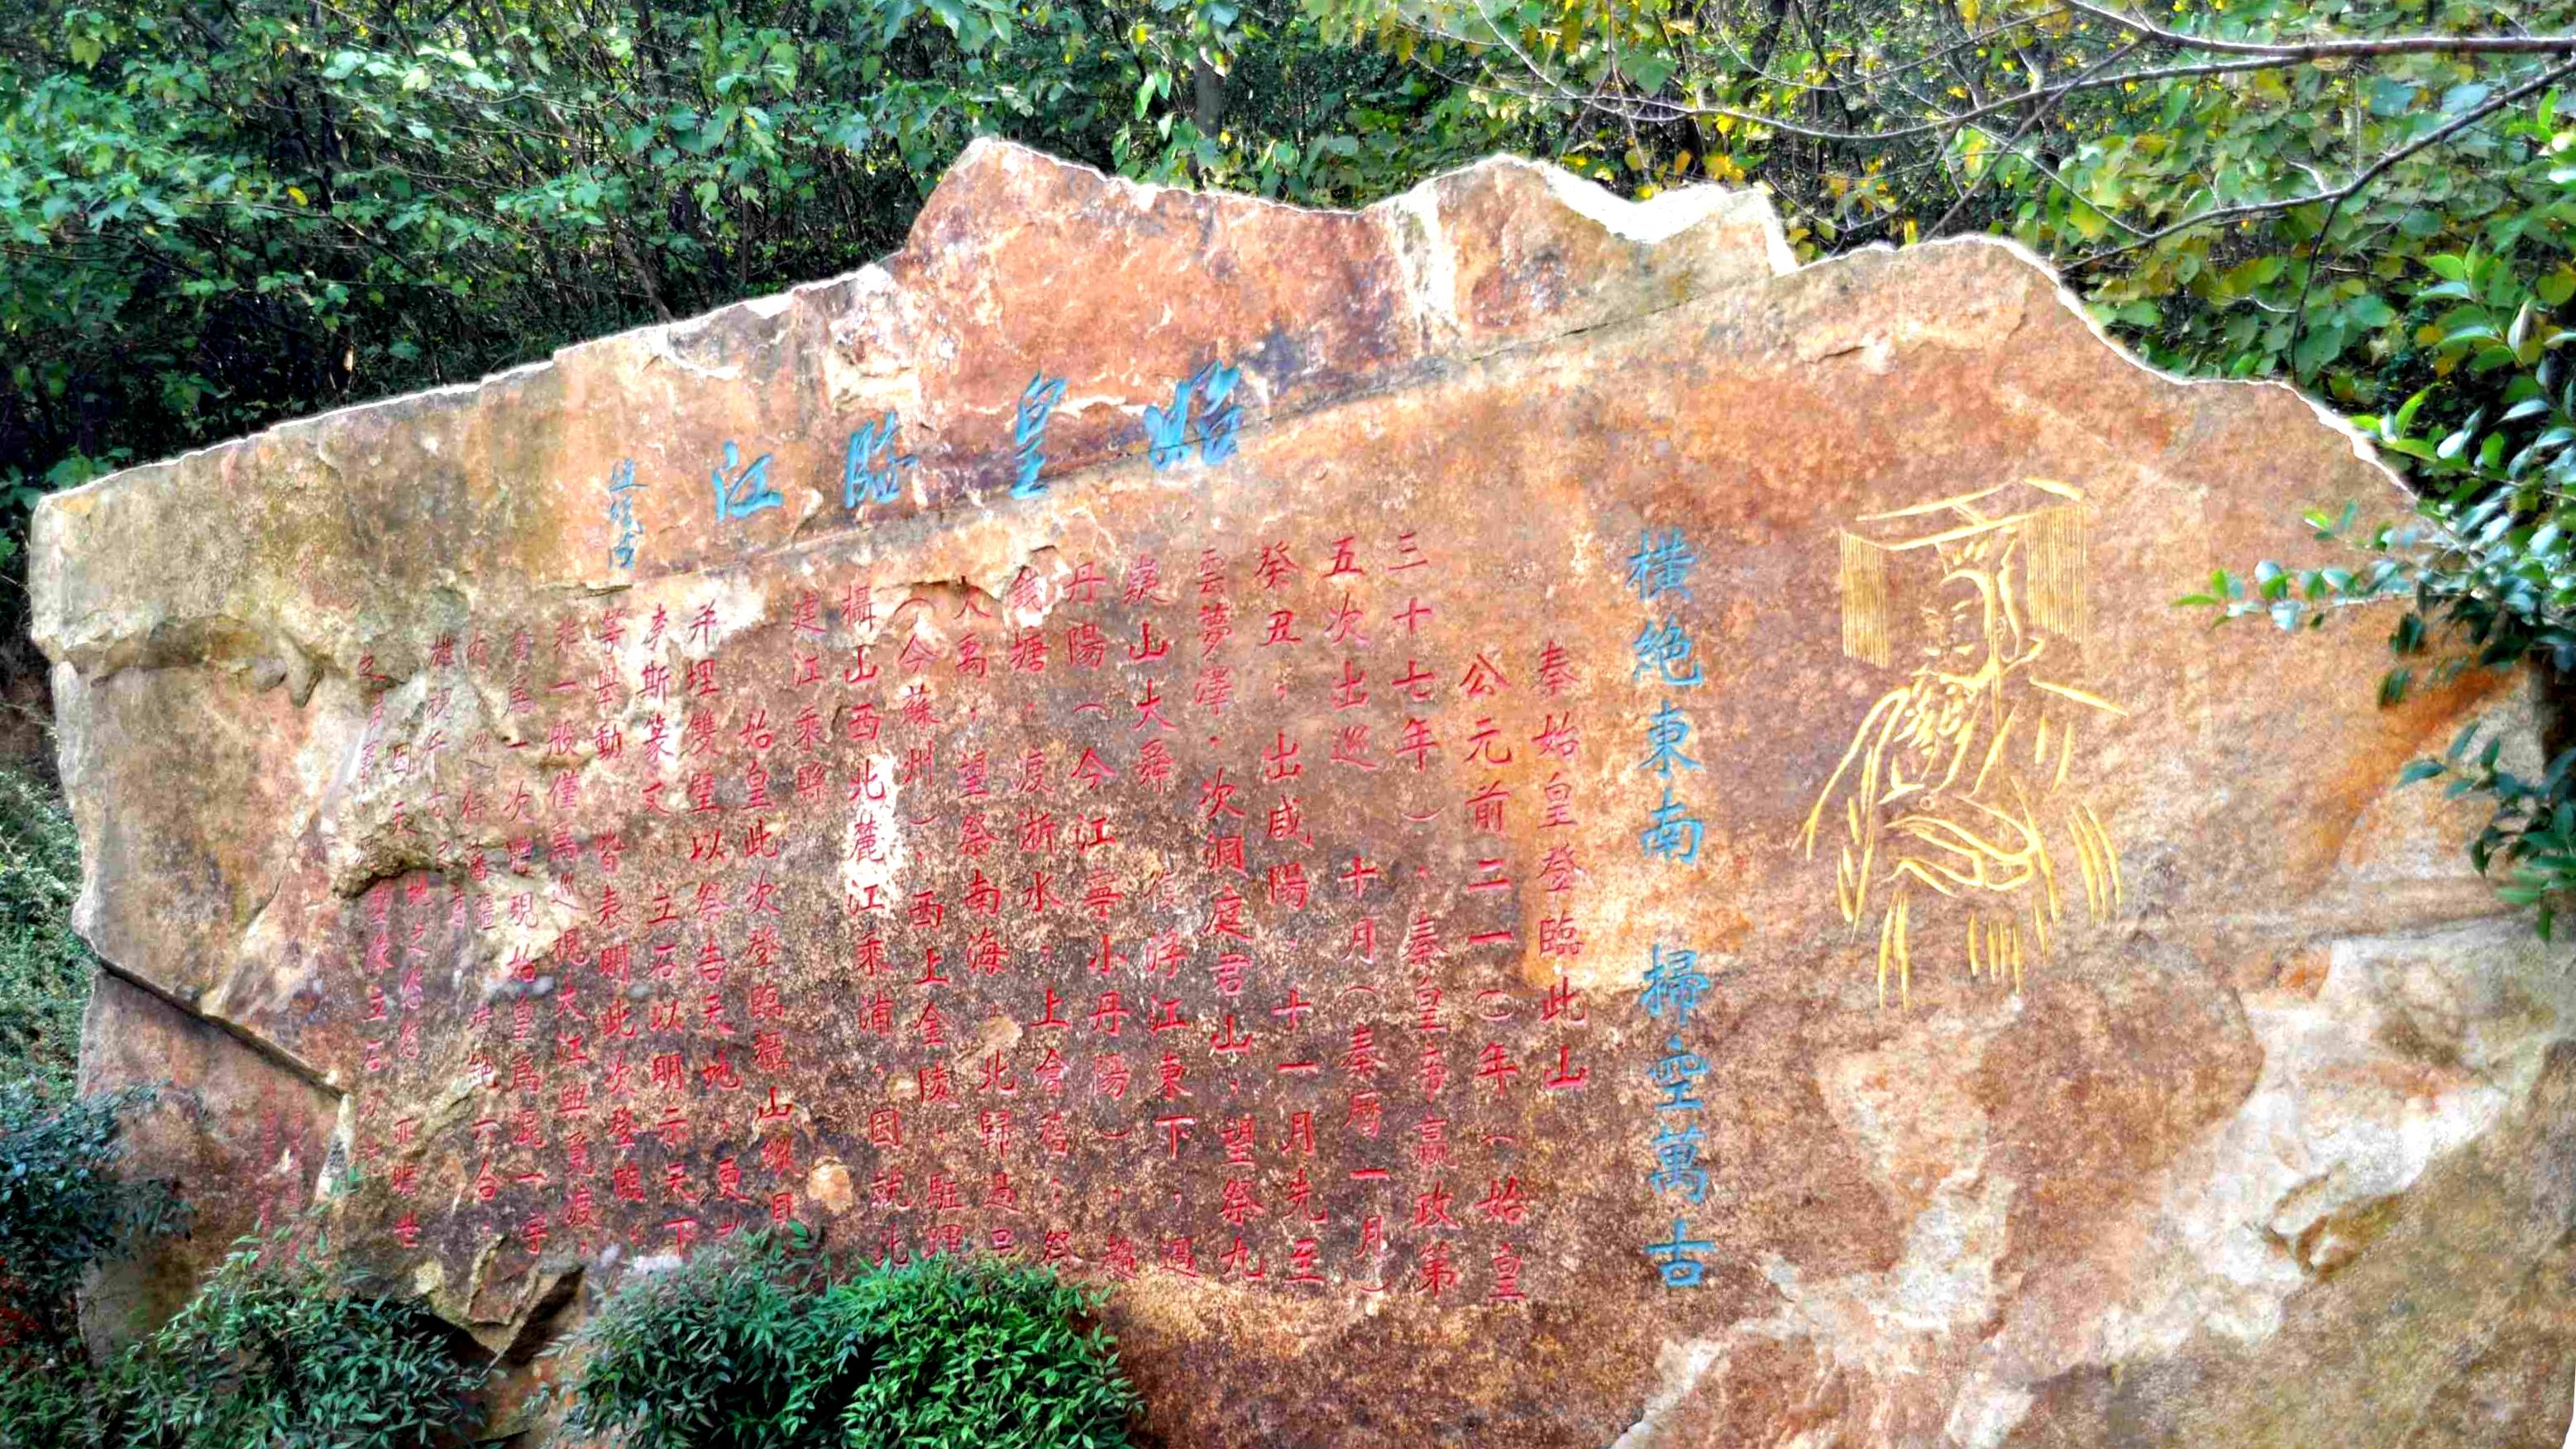 始皇臨江
橫絶東南 掃空萬古
秦始皇登臨此山
公元前二一〇年（始皇
三十七年），秦皇帝嬴政第
五次出巡 十月（秦曆一月）
癸丑，出咸陽，十一月先至
雲夢澤，次洞庭君山，望祭九
嶷山大舜 浮江東下，過
丹陽（今江寧小丹陽），趨
錢塘，渡浙水，上會稽，祭
大禹，望祭南海 北歸過吳
（今蘇州），西上金陵，駐蹕
攝山西北麓江乘浦，因就此
建江乘縣
始皇此次登臨攝山縱目
并埋雙璧以祭告天地，更
李斯篆文 立石以明示天下
等舉動 皆表明此次登臨
非一般僅爲巡視大江與覓渡，
爲一次體現始皇爲混一宇
絶六合，
雄視千古
因天 立石